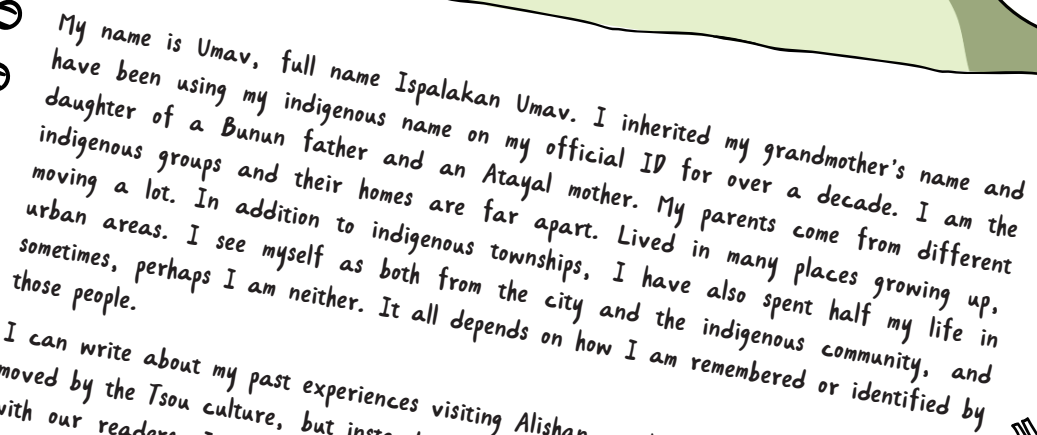 My name is Umav, full name Ispalakan Umav. I inherited my grandmother's name and
have been using my indigenous name on my official ID for over a decade. I am the
daughter of a Bunun father and an Atayal mother. My parents come from different
indigenous groups and their homes are far apart. Lived in many places growing up,
moving a lot. In addition to indigenous townships, I have also spent half my life in
urban areas. I see myself as both from the city and the indigenous community, and
sometimes, perhaps I am neither. It all depends on how I am remembered or identified by
those people.
I can write about my past experiences visiting Alishan
moved by the Tsou culture, but
with our readers.